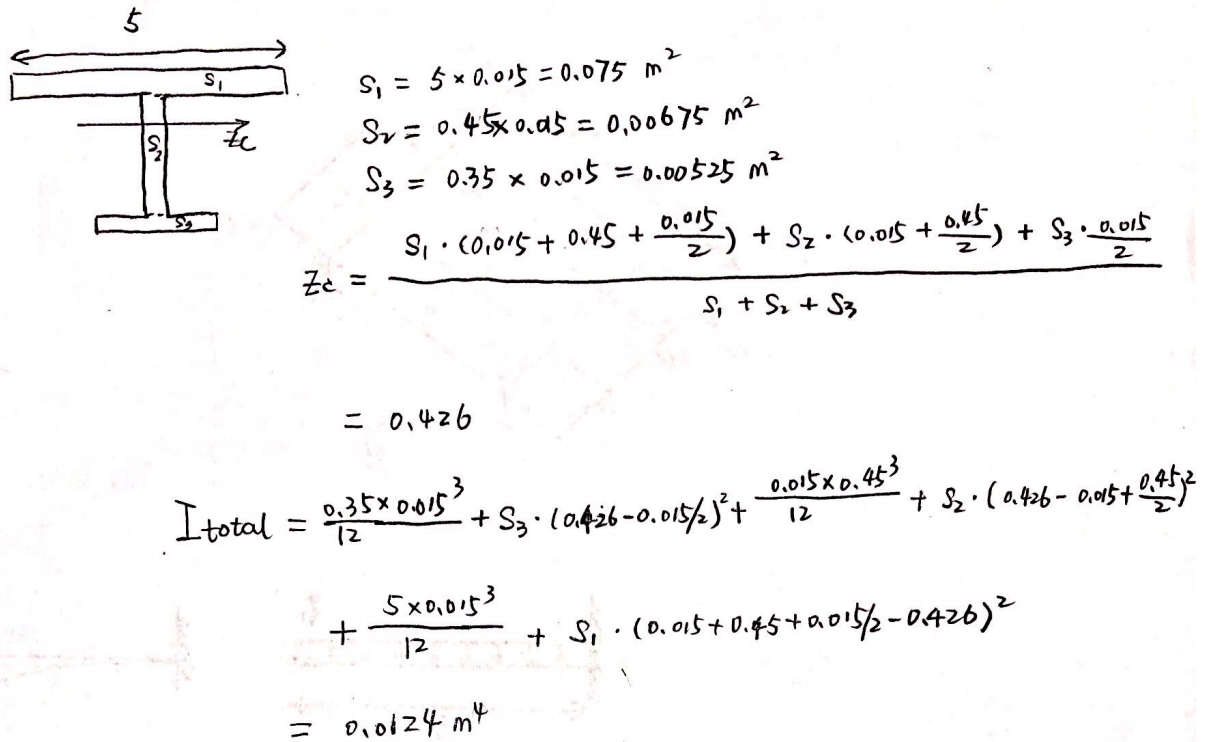 5
S₁
Zc
S₂
S₃
S₁ = 5 × 0.015 = 0.075 m²
S₂ = 0.45 × 0.015 = 0.00675 m²
S₃ = 0.35 × 0.015 = 0.00525 m²
Zc = (S₁ · (0.015 + 0.45 + 0.015/2) + S₂ · (0.015 + 0.45/2) + S₃ · 0.015/2) / (S₁ + S₂ + S₃)
= 0.426
I total = 0.35×0.015³/12 + S₃ · (0.426-0.015/2)² + 0.015×0.45³/12 + S₂ · (0.426 - 0.015 + 0.45/2)²
+ 5×0.015³/12 + S₁ · (0.015 + 0.45 + 0.015/2 - 0.426)²
= 0.0124 m⁴